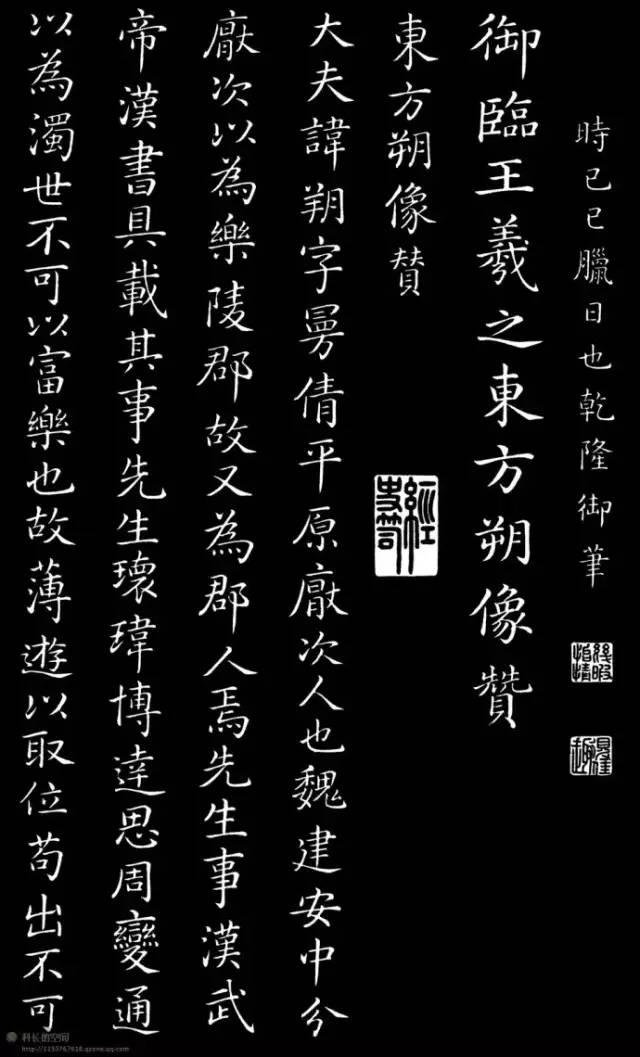 時己巳臘日也乾隆御筆
御臨王羲之東方朔像贊
東方朔像賛
大夫諱朔字曼倩平原厭次人也魏建安中分
厭次以為樂陵郡故又為郡人焉先生事漢武
帝漢書具載其事先生瓌瑋博達思周變通
以為濁世不可以富樂也故薄遊以取位苟出不可
科长的空间